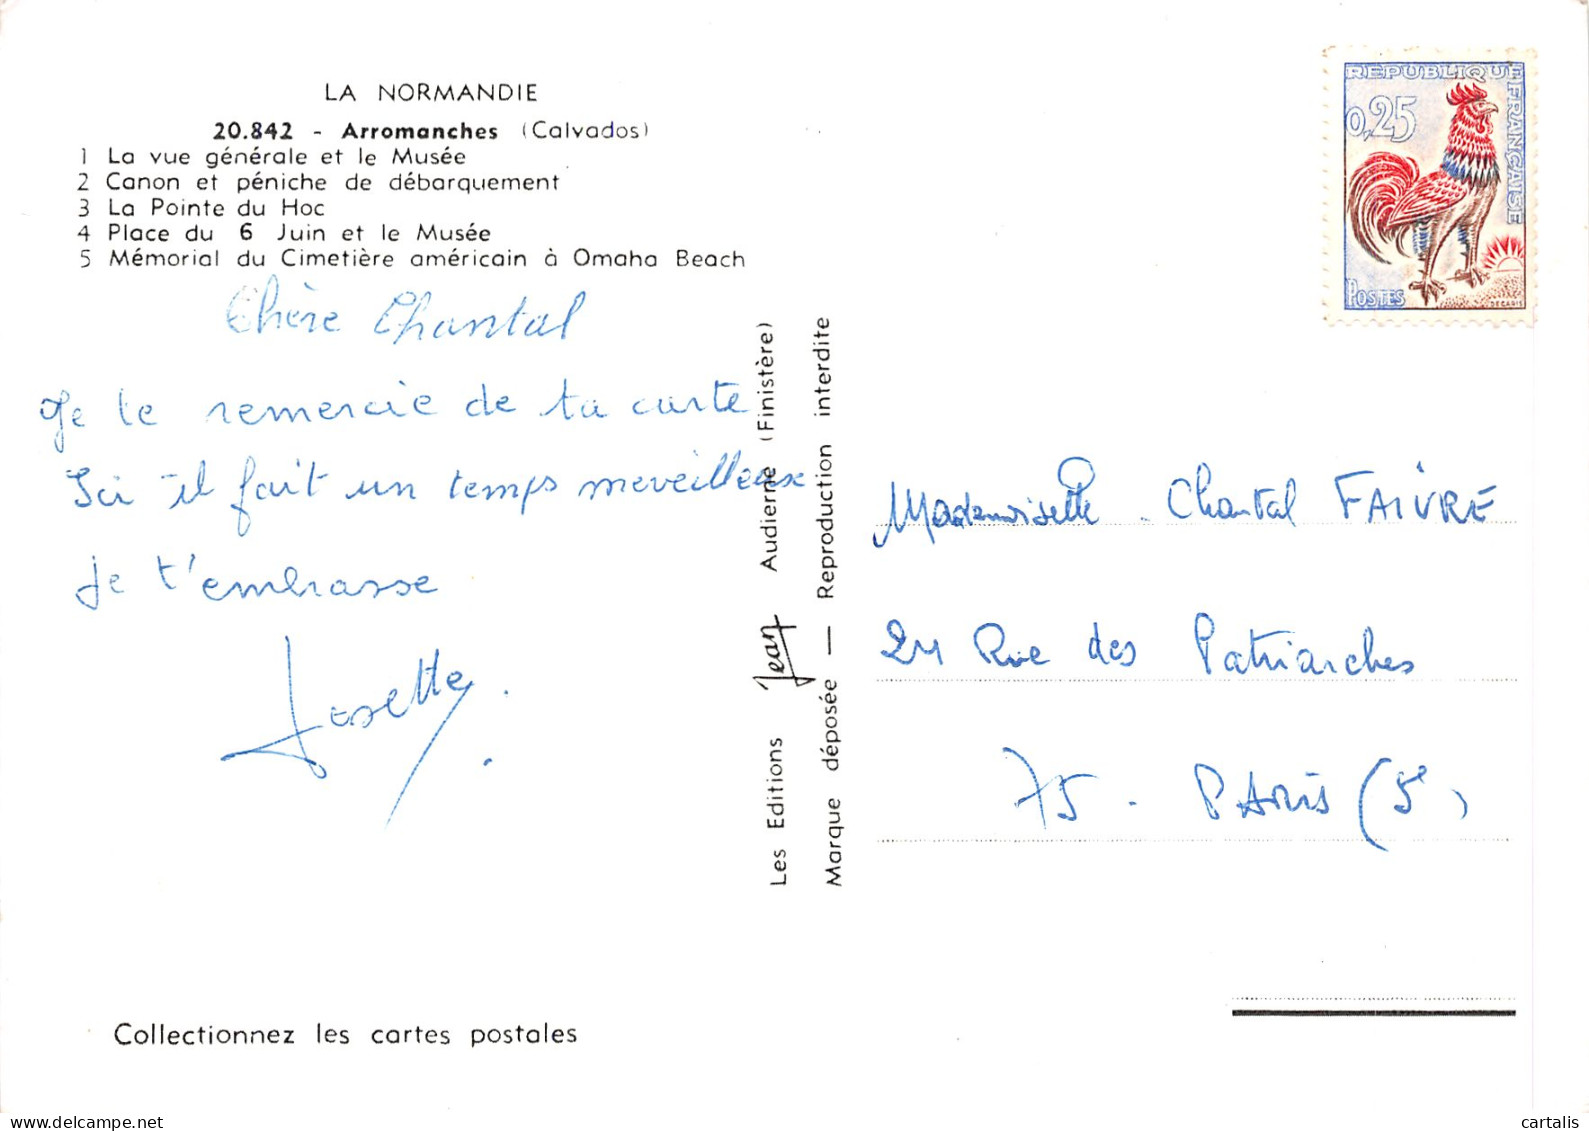 LA NORMANDIE
20.842 - Arromanches (Calvados)
1 La vue générale et le Musée
2 Canon et péniche de débarquement
3 La Pointe du Hoc
4 Place du 6 Juin et le Musée
5 Mémorial du Cimetière américain à Omaha Beach
Chère Chantal
Je te remercie de ta carte
Ici il fait un temps merveilleux
Je t'embrasse
Josette
Collectionnez les cartes postales
Les Editions Jean Audierne (Finistère)
Marque déposée — Reproduction interdite
REPUBLIQUE FRANÇAISE
0,25
POSTES
DECARIS
Mademoiselle Chantal FAIVRE
24 Rue des Patriarches
75 - PARIS (5e)
delcampe.net
cartalis